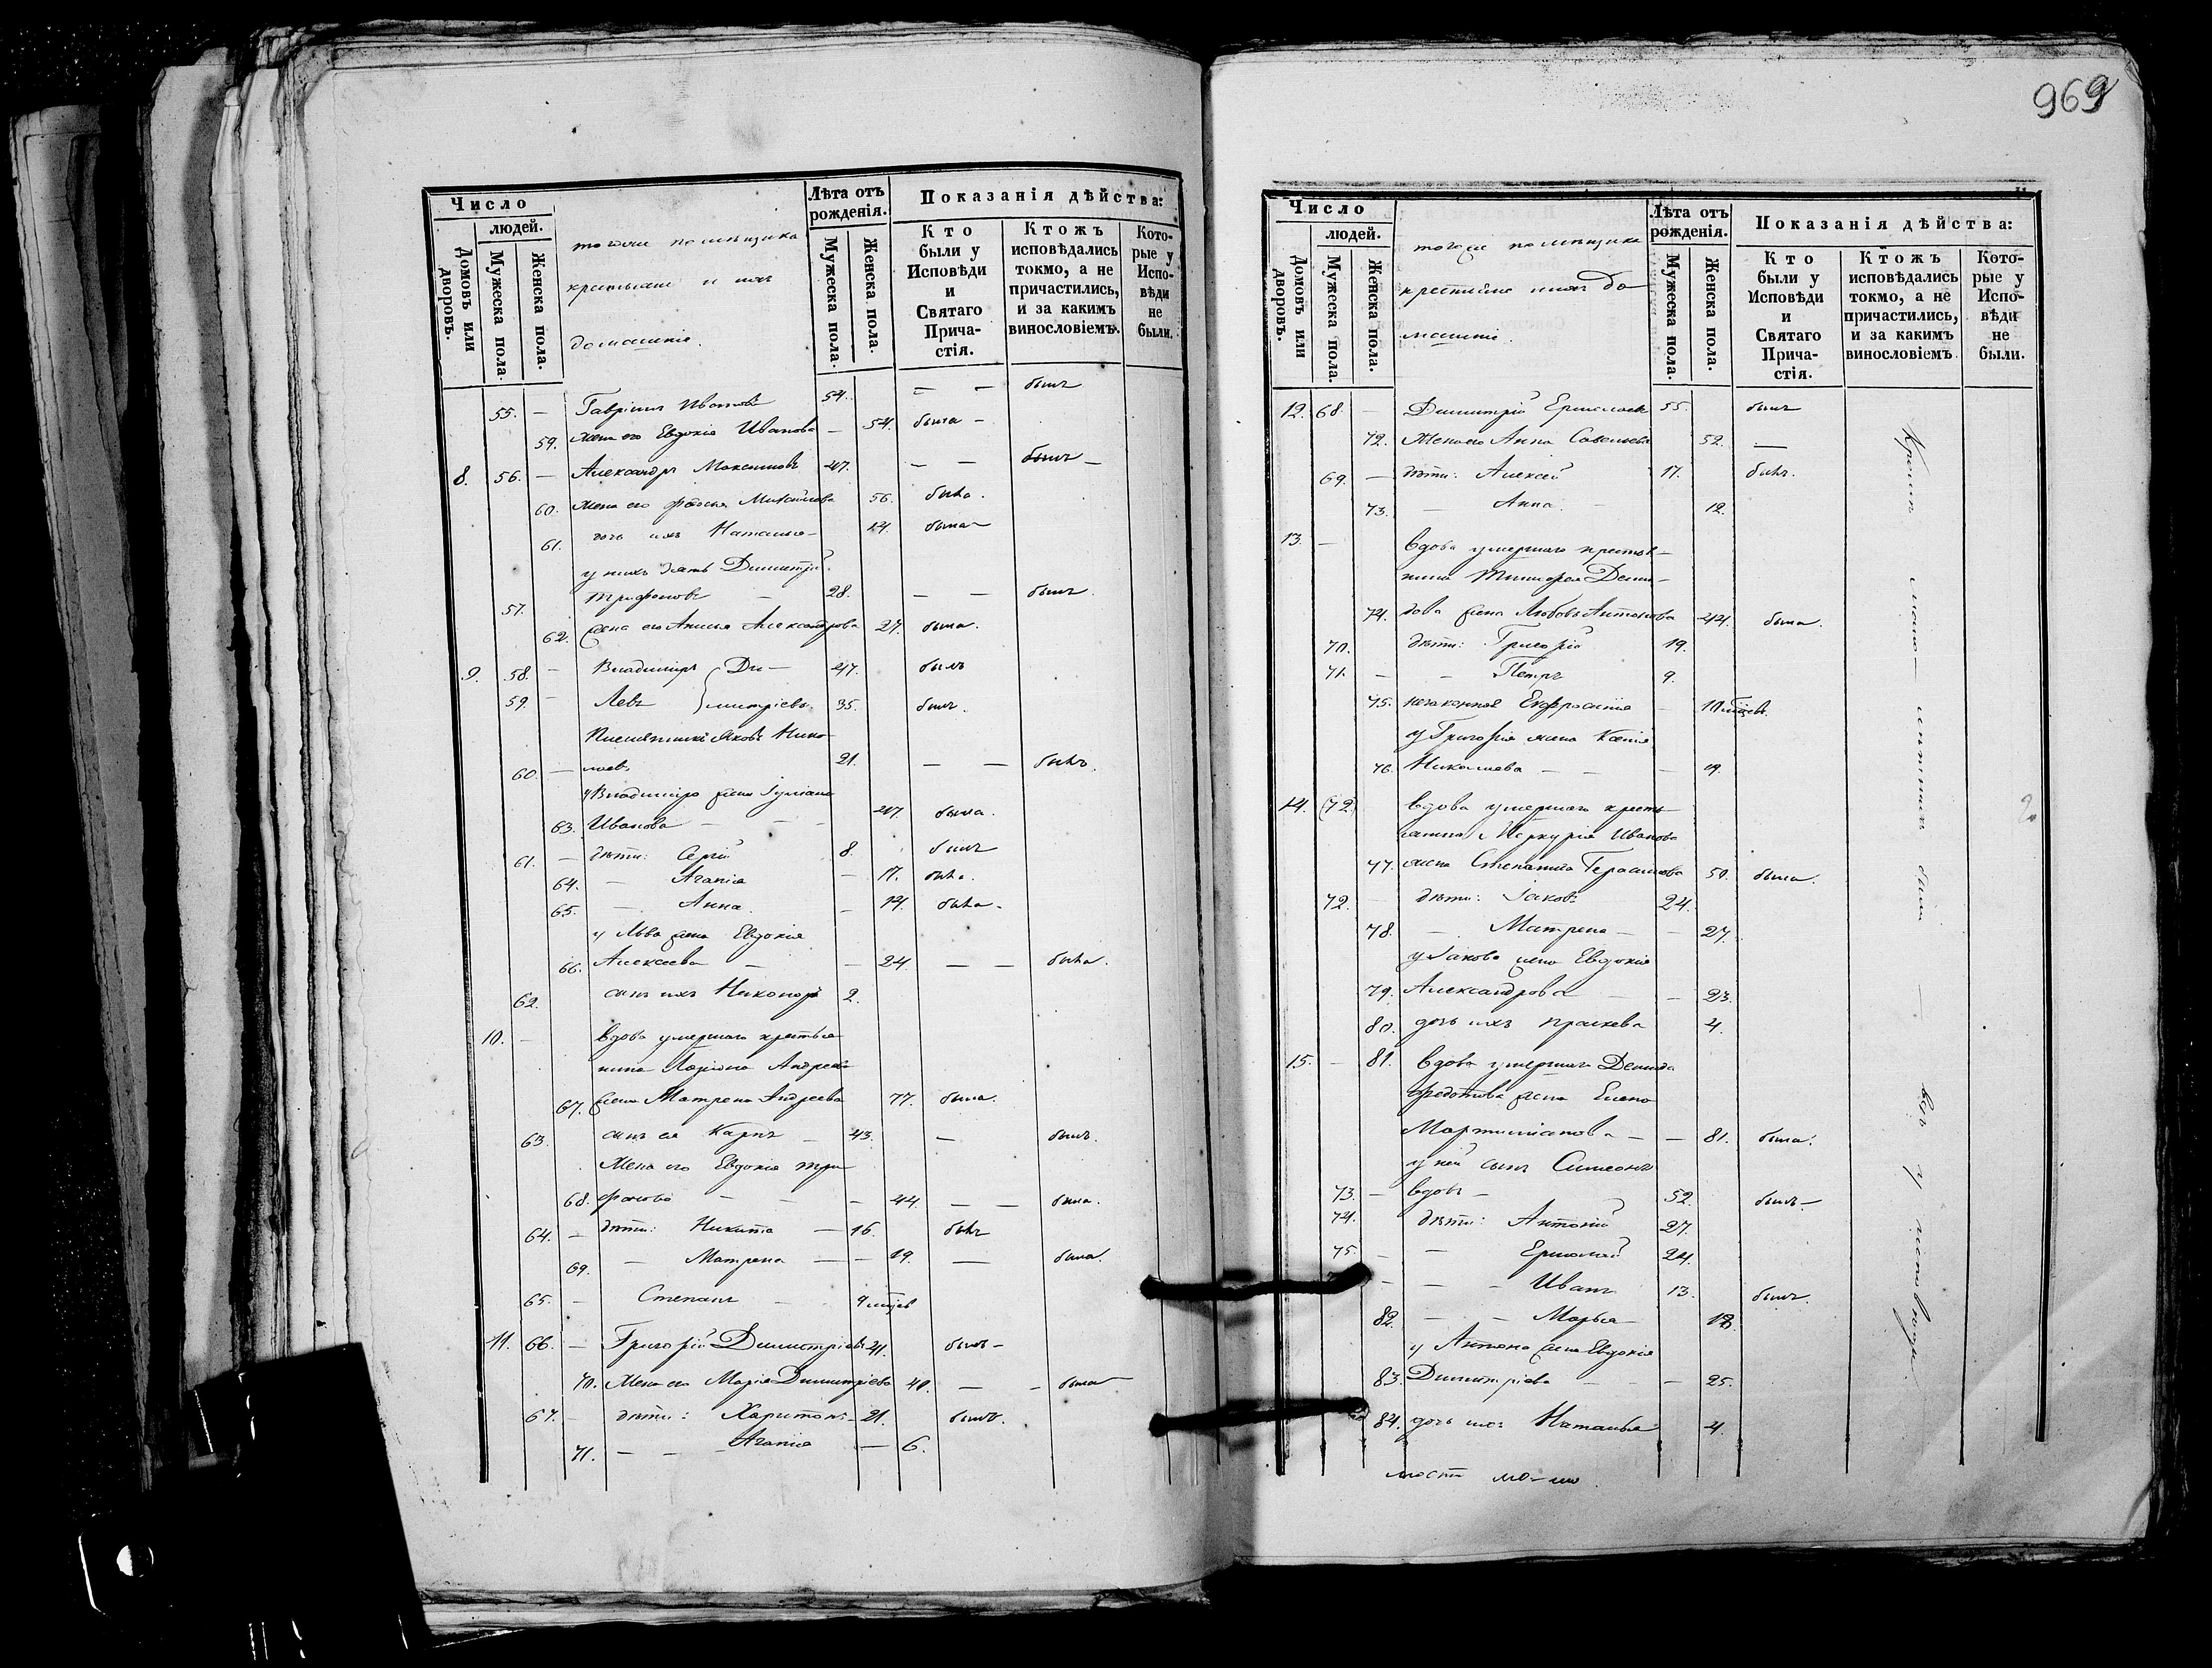 969
Число
людей.
Домовъ или дворовъ.
Мужеска пола.
Женска пола.
тогоже помѣщика
крестьяне и ихъ
домашніе.
Лѣта отъ рожденія.
Мужеска пола.
Женска пола.
Показанія дѣйства:
Кто были у Исповѣди и Святаго Причастія.
Ктожъ исповѣдались токмо, а не причастились, и за какимъ винословіемъ.
Которые у Исповѣди не были.
55. — Гавріилъ Ивановъ 54. — — былъ
59. жена его Евдокія Иванова — 54. была —
8. 56. — Александръ Максимовъ 47. — — былъ —
60. жена его Михайлова 56. была.
61. дочь ихъ Наталья — 14. была —
у нихъ зять Димитрій
57. Трифоновъ — 28. — — былъ.
62. жена его Анисья Александрова 27. была.
9. 58. — Владиміръ Ди— 47. былъ
59. — Левъ митріевы 35. былъ.
Племянникъ Яковъ Нико
60. — лаевъ 21. — — былъ.
у Владиміра жена Іуліана
63. Иванова — — — 47. была.
61. — дѣти: Сергій 8. былъ
64. — Агапія — 17. была.
65. — Анна — 14. была.
у Льва жена Евдокія
66. Алексеева — — 24. — — была.
62. сынъ ихъ Никоноръ 2.
10. — вдова умершаго крестья
нина Андреева
67. жена Матрена Андреева 77. была.
63. сынъ ея Карпъ — 43. — былъ.
Жена его Евдокія Три
68. фонова — — — 44. — — была.
64. — дѣти: Никита — 16. былъ
69. — Матрена — — 19. — была.
65. — Степанъ — 9 мѣсяц
11. 66. — Григорій Димитріевъ 41. былъ —
70. Жена его Марія Димитріева 40. — — была
67. — дѣти: Харитонъ — 21. былъ.
71. — — Агапія — 6.
Число
людей.
Домовъ или дворовъ.
Мужеска пола.
Женска пола.
тогоже помѣщика
крестьяне и ихъ до
машніе.
Лѣта отъ рожденія.
Мужеска пола.
Женска пола.
Показанія дѣйства:
Кто были у Исповѣди и Святаго Причастія.
Ктожъ исповѣдались токмо, а не причастились, и за какимъ винословіемъ
Которые у Исповѣди не были.
12. 68. — Димитрій Ермолаевъ 55. былъ
72. Жена его Анна Савельева 52. —
69. — дѣти: Алексей 17. былъ.
73. — Анна. — 12.
13. — вдова умершаго крестья—
нина Тимофея Деми—
74. дова жена Любовь Антонова 44. была.
70. дѣти: Григорій 19.
71. — — Петръ 9.
75. незаконная Евфросинія — 10 мѣсяцев.
у Григорія жена Ксенія
76. Николаева — — — 19.
14. (72) вдова умершаго кресть—
янина Меркурія Иванова
77. жена Степанида Герасимова 50. была.
72. дѣти: Іаковъ 24.
78. — Матрена — — 27.
у Іакова жена Евдокія
79. Александрова — — 23.
80. дочь ихъ Праскева 4.
15. — 81. вдова умершаго Демида
Федотова жена Елена
Мартиніанова — — 81. была.
у ней сынъ Симеонъ
73. — вдовъ — 52. былъ —
74. дѣти: Антоній 27.
75. — — Ермолай 24.
— — — Иванъ 13. былъ.
82. — — Марья — 18.
у Антона жена Евдокія
83. Димитріева — — — 25.
84. дочь ихъ Наталья 4.
Кроме мало—лѣтнихъ были — вси у исповѣди.